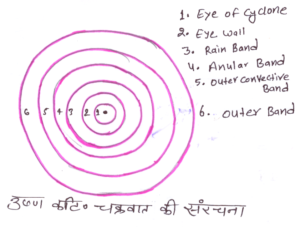 1. Eye of Cyclone
2. Eye Wall
3. Rain Band
4. Anular Band
5. Outer Convective
Band
6. Outer Band
6 5 4 3 2 1
उष्ण कटि० चक्रवात की संरचना